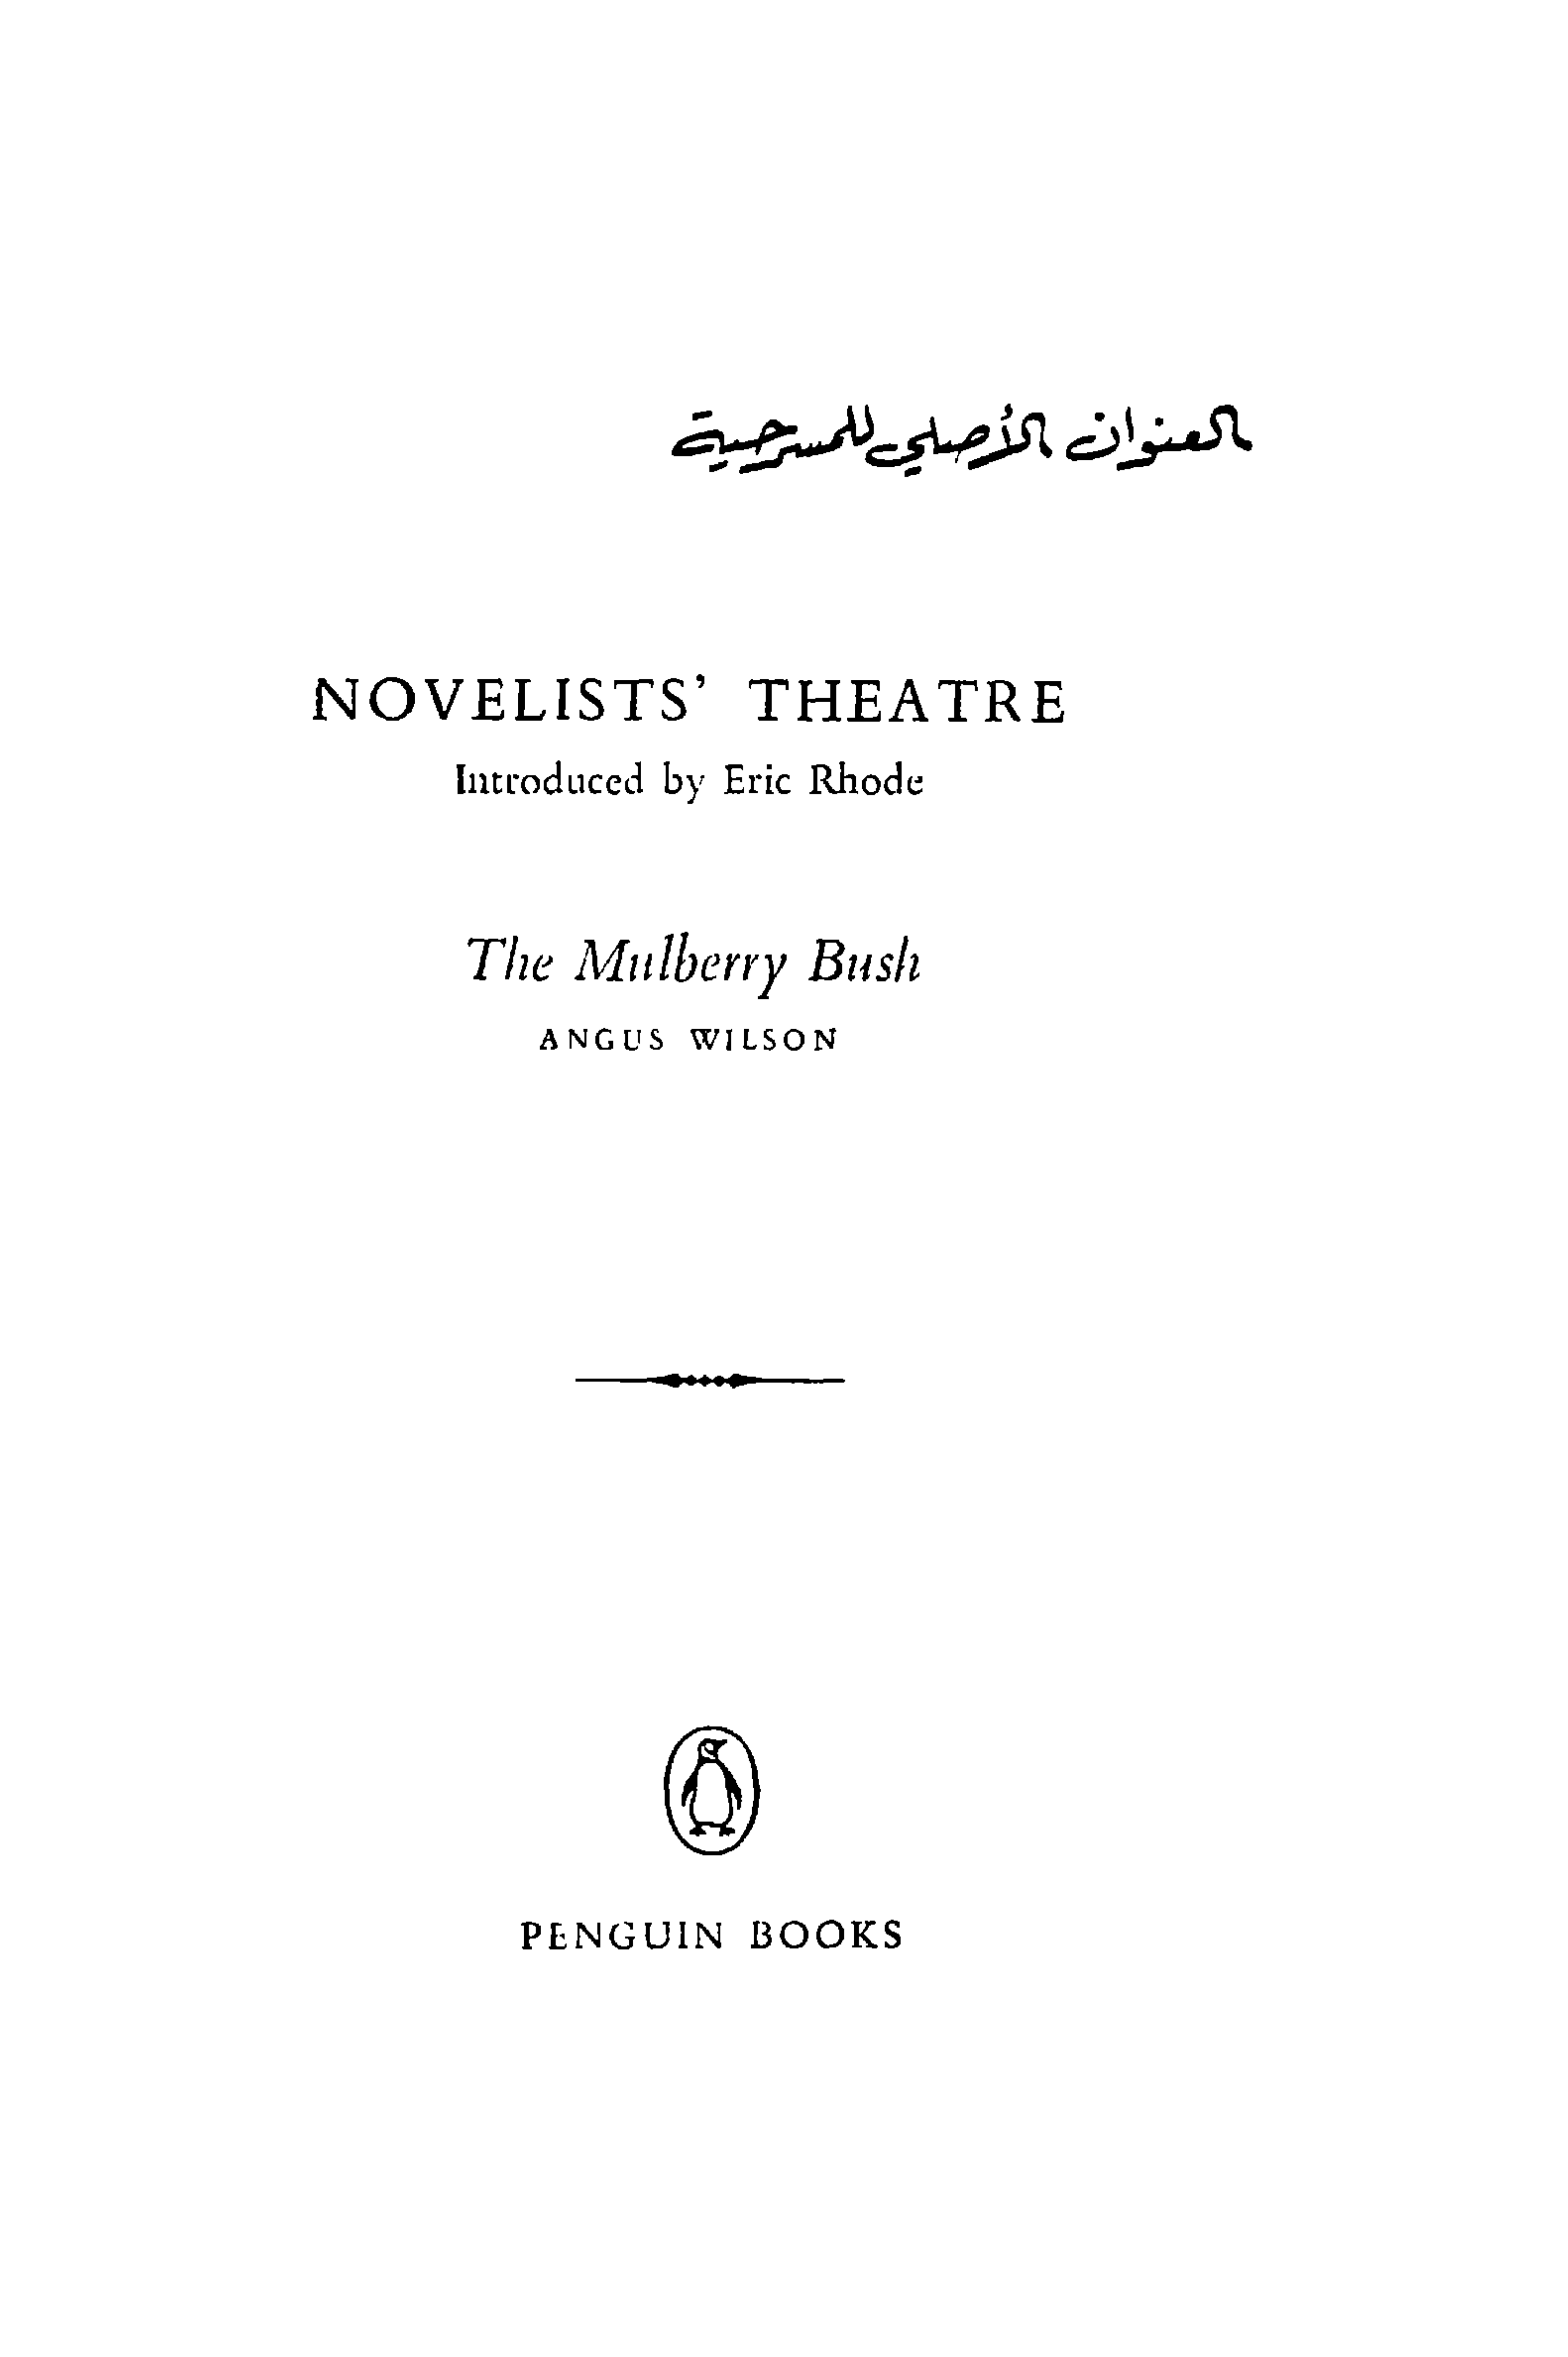 العنوان الأصلي للمسرحية
NOVELISTS’ THEATRE
Introduced by Eric Rhode
The Mulberry Bush
ANGUS WILSON
PENGUIN BOOKS